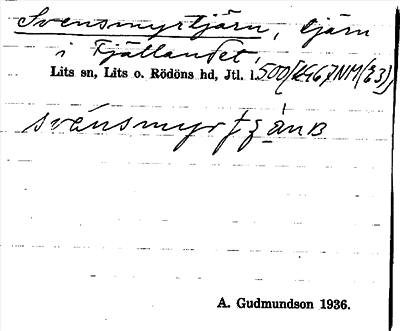 Svensmyrtjärn, tjärn
i Fjällandet,
Lits sn, Lits o. Rödöns hd, Jtl. l.
svensmyr
A. Gudmundson 1936.